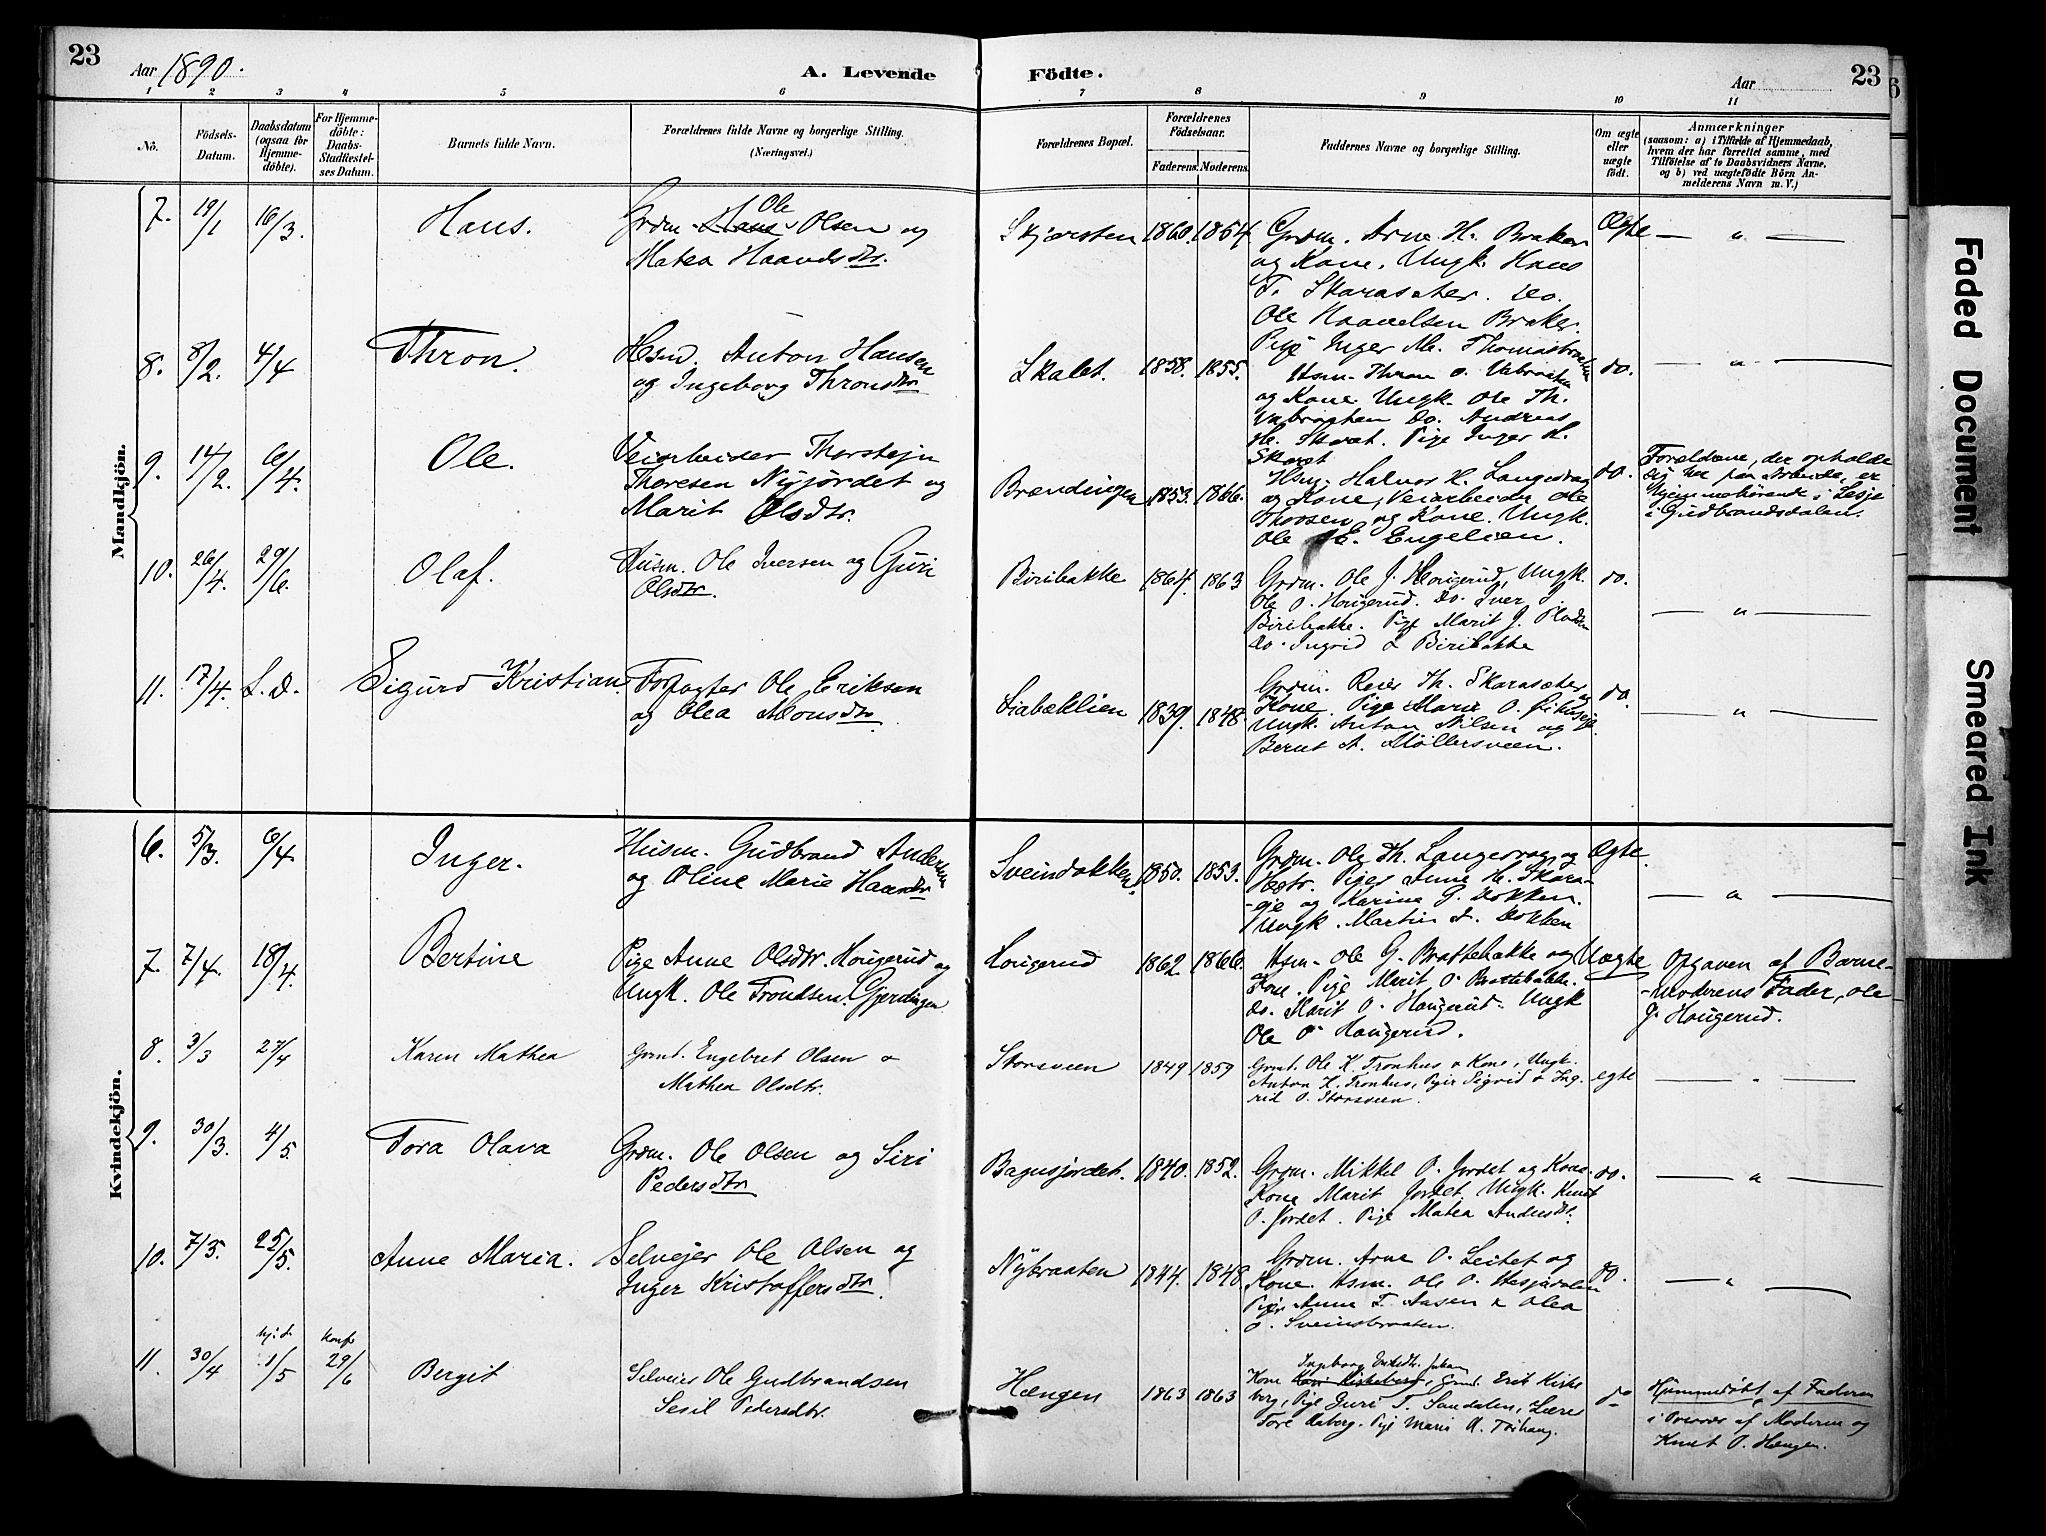 23
Aar 1890.
A. Levende Födte.
Aar
23
1 2 3 4 5 6 7 8 9 10 11
No.
Födsels-Datum.
Daabsdatum (ogsaa for Hjemme-döbte).
For Hjemme-döbte: Daabs-Stadfæstel-ses Datum.
Barnets fulde Navn.
Forældrenes fulde Navne og borgerlige Stilling.
(Næringsvei.)
Forældrenes Bopæl.
Forældrenes Födselsaar.
Faderens. Moderens.
Faddernes Navne og borgerlige Stilling.
Om ægte eller uægte födt.
Anmærkninger
(saasom: a) i Tilfælde af Hjemmedaab,
hvem der har forrettet samme, med
Tilföielse af to Daabsvidners Navne,
og b) ved uægtefödte Börn An-
melderens Navn m. V.)
Mandkjön.
7. 19/1 16/3 Hans. Grdm. Hans Ole Olsen og
Matea Haavelsdtr. Skjærsten 1860. 1864 Grdm. Arne H. Braker
og Kone, Ungk. Hans
T. Skarasæter. Do.
Ole Haavelsen Braker.
Pige Inger M. Thomasbraaten Ægte — " —
8. 8/2. 4/4 Thron. Hsm. Anton Hansen
og Ingeborg Thronsdtr. Skalet. 1858. 1855. Hsm. Thron O.
og Kone Ungk. Ole Th.
Do. Andreas
H. Skaret. Pige Inger H.
Skaret do. — " —
9. 14/2. 6/4. Ole. Veiarbeider Thorstejn
Thoresen Nyjordet og
Marit Olsdtr. Brændingen 1853. 1866. Hsm. Halvor H. Langedrag
og Kone, Veiarbeider Ole
Thoosen og Kone. Ungk.
Ole H. Engelien. do. Forældrene, der opholde
sig her paa Arbeide, er
hjemmehörende i Lesje
i Gudbrandsdalen.
10. 26/4 29/6. Olaf. Husm. Ole Iversen og Guri
Olsdtr. Biribakke 1864. 1863 Grdm. Ole J. Hougerud, Ungk.
Ole O. Hougerud. Do. Iver J.
Biribakke. Pige Marit J. Pladsen
Do. Ingrid Biribakke do. — " —
11. 17/4. S. D. Sigurd Kristian. Forpagter Ole Eriksen
og Olea Monsdtr. Liabæklien 1839. 1848. Grdm. Reier Th. Skarasæter og
Kone. Pige Marie O.
Ungk. Anton Nilsen og
Bernt A. Möllersveen. do. — " —
Kvindekjön.
6. 5/3. 6/4 Inger. Husm. Gudbrand Andersen
og Oline Marie Hansdtr. Sveindokken. 1850. 1853. Grdm. Ole Th. Langedrag og
Hstr. Piger Anne H. Skara-
eje og Karine G. Dokken.
Ungk. Martin A. Dokken Ægte. — " —
7. 7/4. 18/4. Bertine Pige Anne Olsdtr. Hougerud og
Ungk. Ole Trondsen Gjerdingen Hougerud 1862 1866. Hsm. Ole G. Brattebakke og
Kone. Pige Marit O. Brattebakke.
Do. Marit O. Hougerud. Ungk
Ole O. Hougerud. Uægte Opgaven af Barne-
Moderens Fader, Ole
J. Hougerud.
8. 3/3 27/4 Karen Mathea Grmd. Engebret Olsen &
Mathea Olsdtr. Storsveen 1849 1859 Grmd. Ole K. Tronhus & Kone, Ungk.
Anton K. Tronhus, Piger Sigrid & Ing-
rid O. Storsveen. egte — " —
9. 30/3. 4/5. Tora Olava Grdm. Ole Olsen og Siri
Pedersdtr. Bagnsjordet. 1840. 1852. Grdm. Mikkel O. Jordet og Kone.
Kone Marit Jordet, Ungk. Knut
O. Jordet. Pige Matea Andersdtr. do. — " —
10. 7/5. 25/5. Anne Maria. Selvejer Ole Olsen og
Inger Kristoffersdtr. Nybraaten 1844. 1848. Grdm. Arne O. Leitet og
Kone. Hsm. Ole O. Hesjedalen
Piger Anne T. Aasen & Olea
O. Sveinsbraaten. do. — " —
11. 30/4 hj. d. 1/5 Konf. 29/6 Bergit Selveier Ole Gudbrandsen
Sesil Pedersdtr. Hængen 1863 1863 Ingeborg Eriksdtr.
Kone Kirkeberg, Grmd. Erik Kirke
berg, Pige Guri T. Sandalen, Lærer
Tore Aaberg. Pige Maria A. Törhaug. do Hjemmedöbt af Faderen
i Overvær af Moderen og
Knut O. Hængen.
Faded Document
Smeared Ink
6